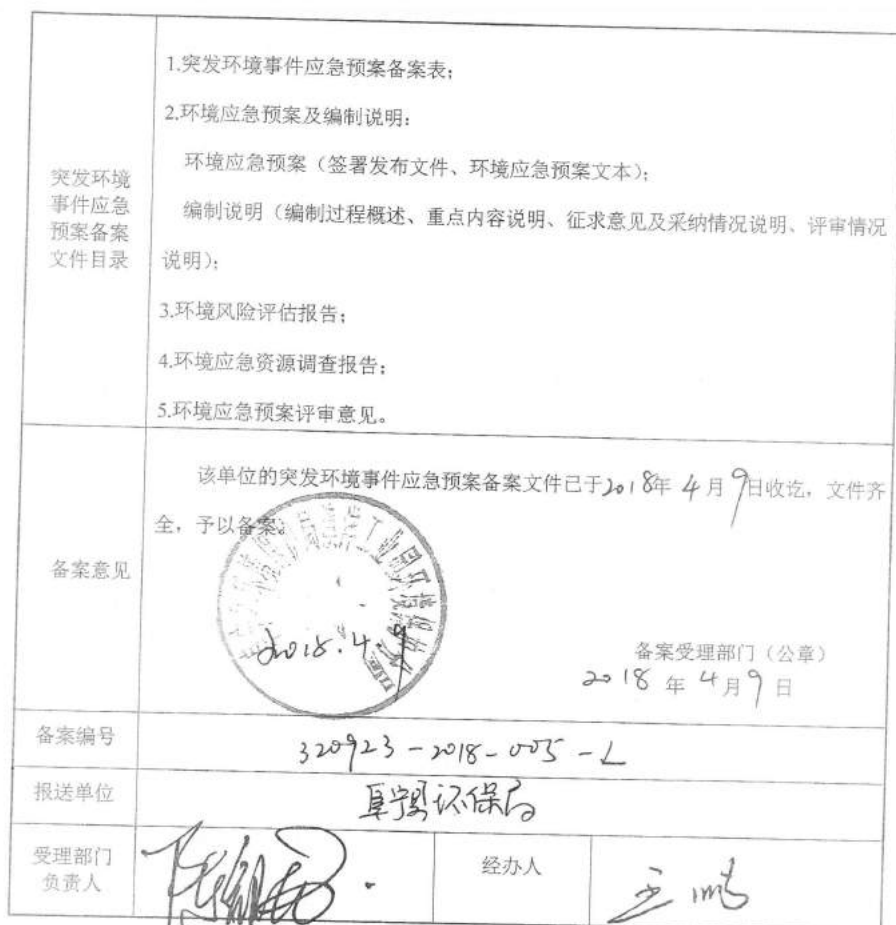 突发环境
事件应急
预案备案
文件目录
1.突发环境事件应急预案备案表；
2.环境应急预案及编制说明：
环境应急预案（签署发布文件、环境应急预案文本）；
编制说明（编制过程概述、重点内容说明、征求意见及采纳情况说明、评审情况
说明）；
3.环境风险评估报告；
4.环境应急资源调查报告；
5.环境应急预案评审意见。
备案意见
该单位的突发环境事件应急预案备案文件已于2018年4月9日收讫，文件齐
全，予以备案。
2018.4.9
备案受理部门（公章）
2018年4月9日
备案编号
320923-2018-005-L
报送单位
阜宁县环保局
受理部门
负责人
经办人
王鹏